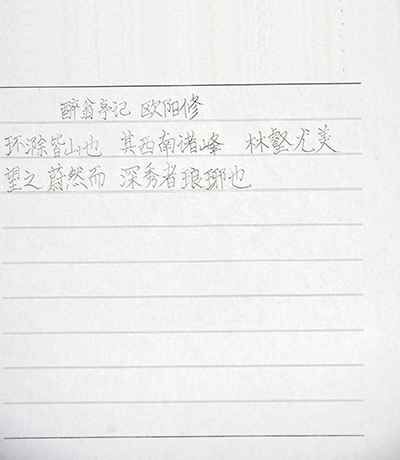 醉翁亭记 欧阳修
环滁皆山也 其西南诸峰 林壑尤美
望之蔚然而 深秀者琅琊也